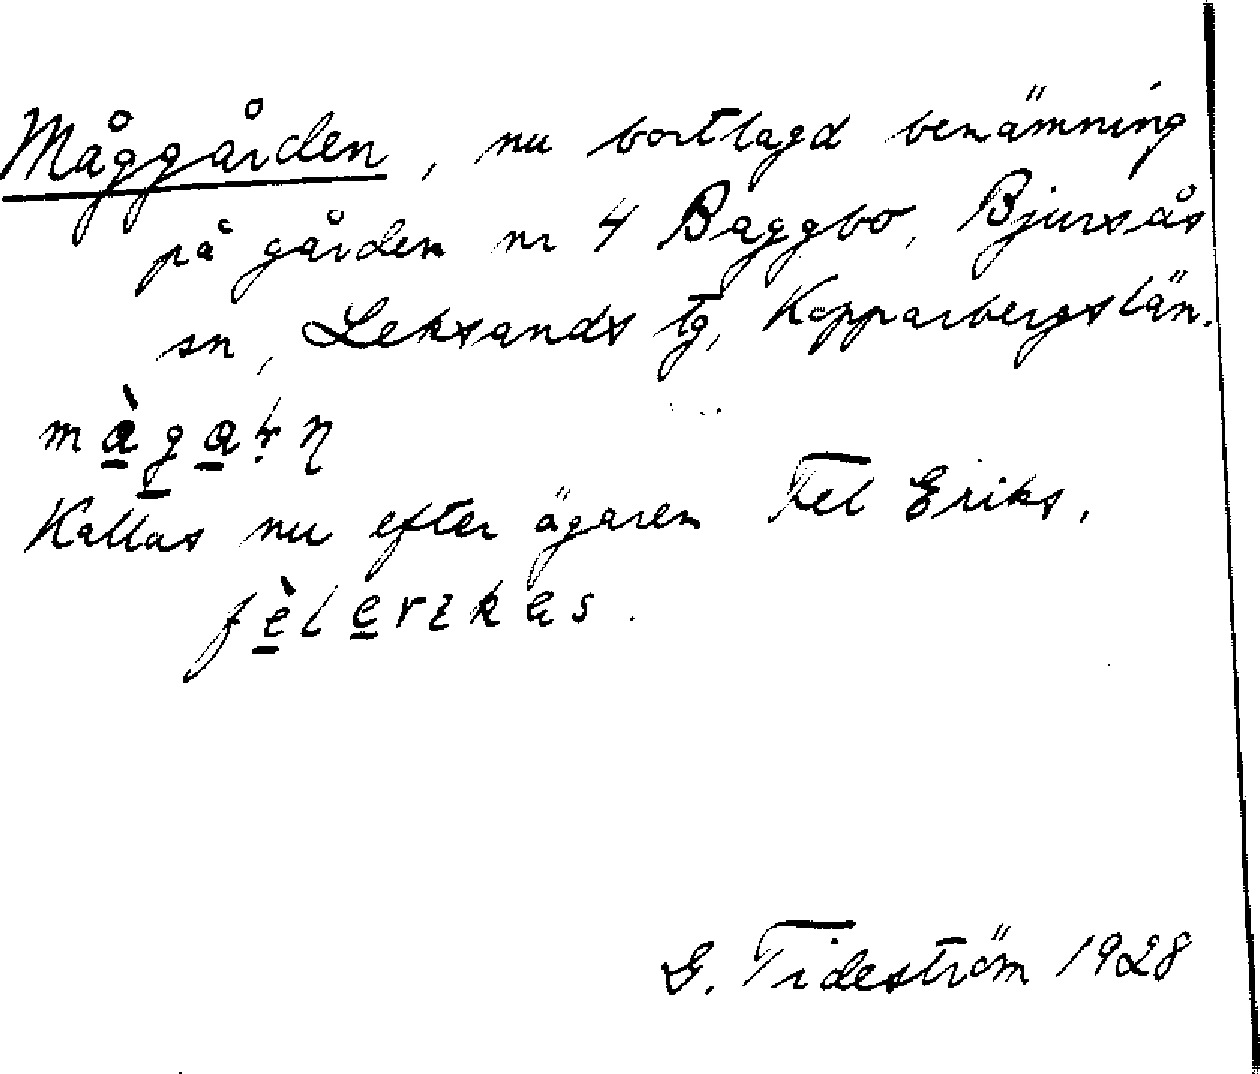 Måggården, nu bortlagd benämning
på gården nr 4 Baggbo, Bjursås
sn, Leksands tg, Kopparbergs län.
màgaṛη
Kallas nu efter ägaren Fel Eriks,
fèlerɩkəs.
G. Tideström 1928